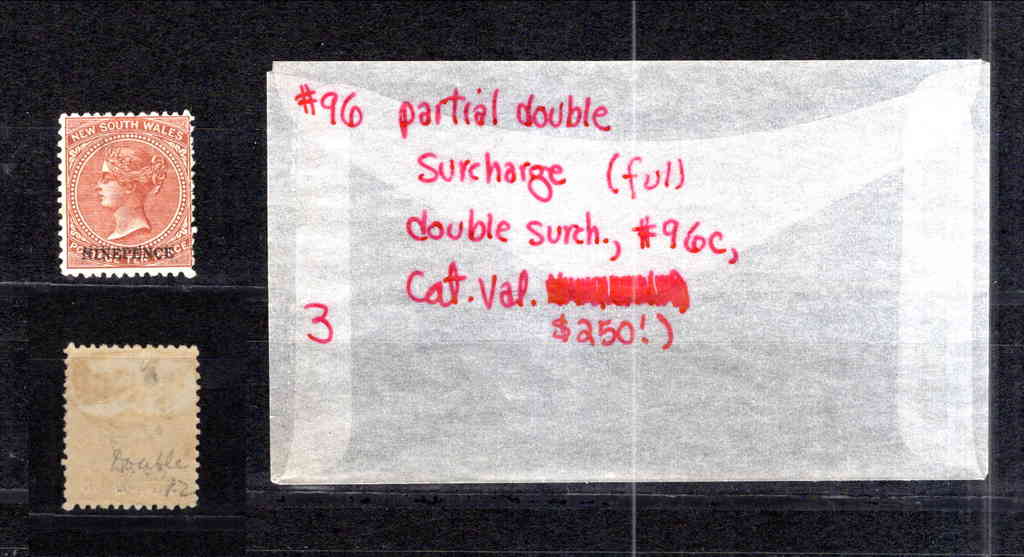 NEW SOUTH WALES
NINEPENCE
Double
12
#96 partial double
surcharge (full)
double surch., #96c,
Cat. Val.
$250!)
3